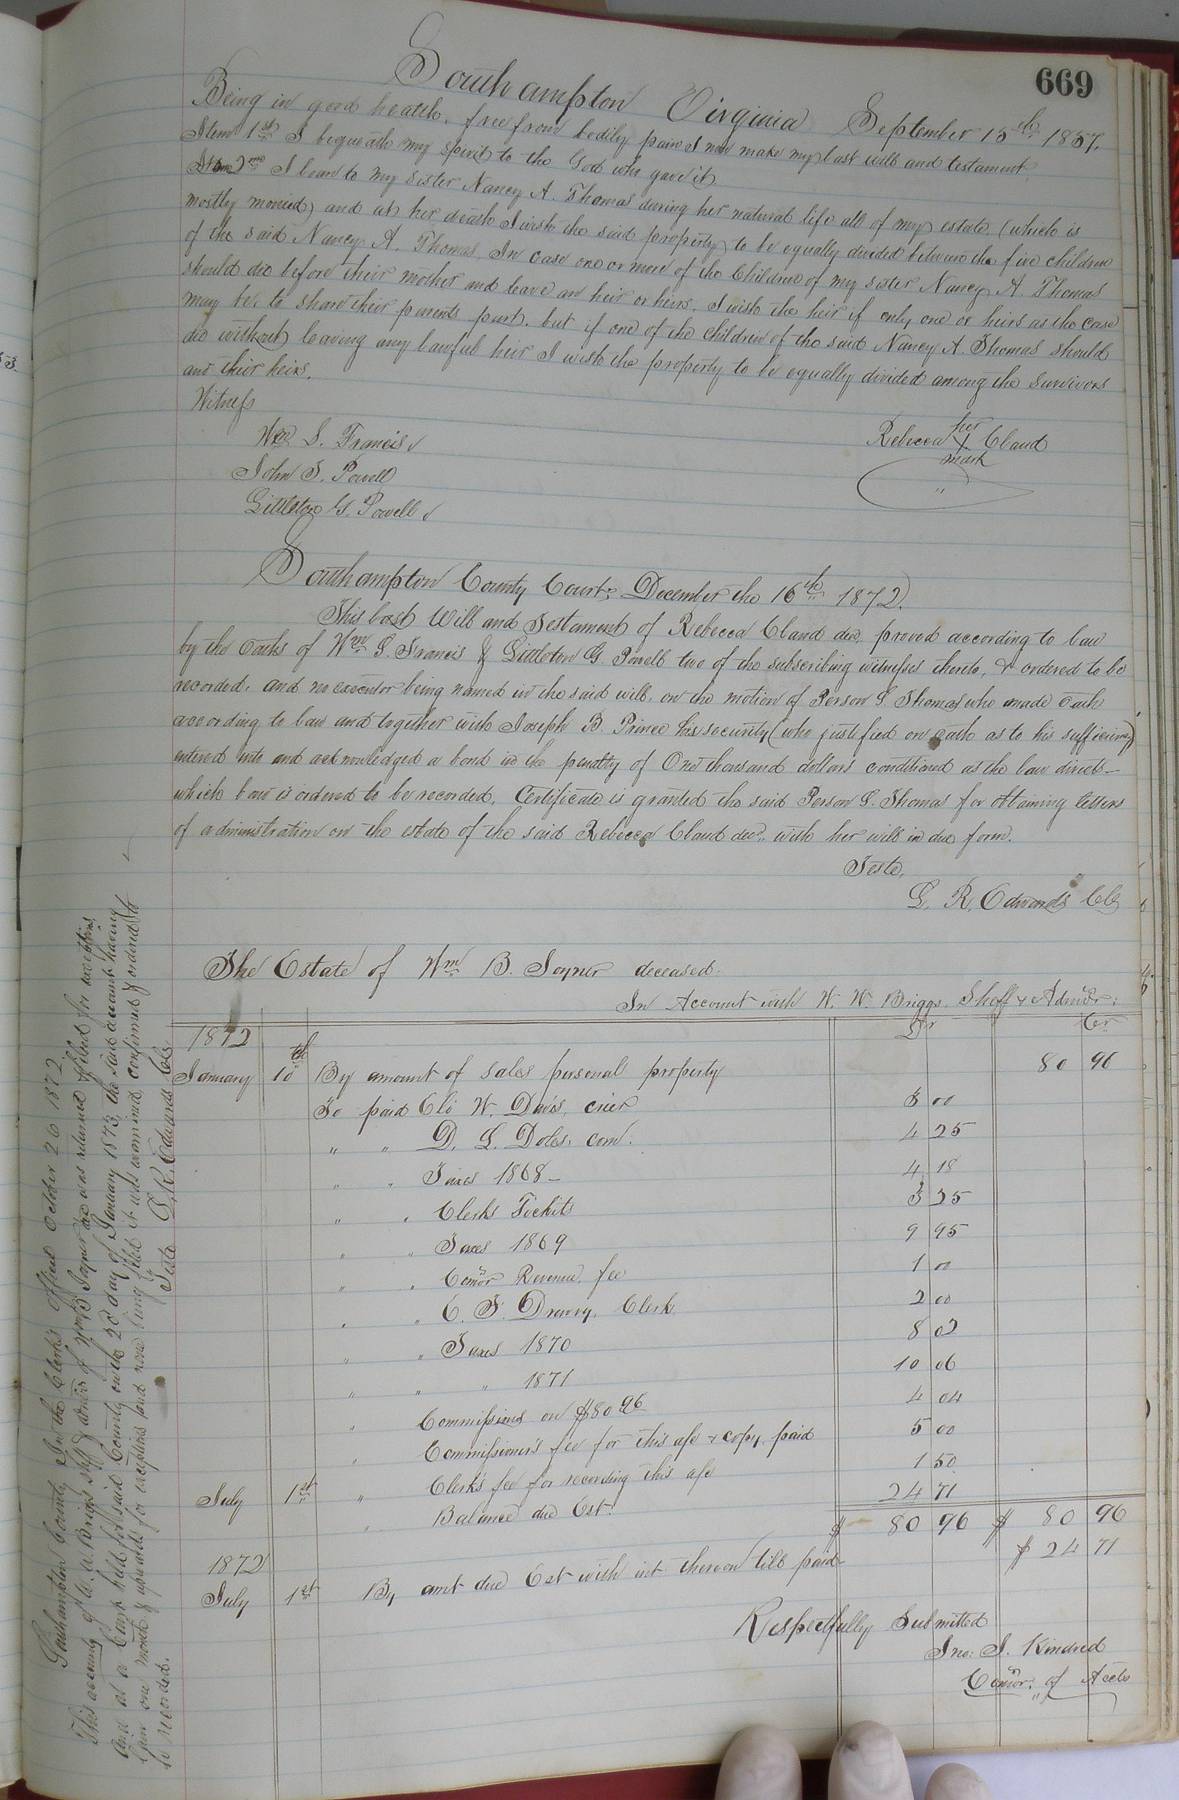 669
Southampton Virginia September 15th 1857.
Being in good health, free from bodily pain I now make my last will and testament.
Item 1st I bequeath my spirit to the God who gave it.
Item 2nd I loan to my sister Nancy A. Thomas during her natural life all of my estate (which is
mostly monied) and at her death I wish the said property to be equally divided between the five children
of the said Nancy A. Thomas. In case one or more of the Children of my sister Nancy A Thomas
should die before their mother and leave an heir or heirs, I wish the heir if only one or heirs as the case
may be, to share their parents part, but if one of the children of the said Nancy A. Thomas should
die without leaving any lawful heir I wish the property to be equally divided among the survivors
and their heirs.
Witness
Wm S. Francis
John T. Powell
Littleton G. Powell
her
Rebecca X Claud
mark
Southampton County Court: December the 16th 1872.
This Last Will and Testament of Rebecca Claud dec. proved according to law
by the oaths of Wm S. Francis & Littleton G. Powell two of the subscribing witnesses thereto, & ordered to be
recorded, and no executor being named in the said will, on the motion of Person S. Thomas who made oath
according to law and together with Joseph B. Prince his security (who justified on oath as to his sufficiency)
entered into and acknowledged a bond in the penalty of One thousand dollars conditioned as the law directs
which bond is ordered to be recorded, Certificate is granted the said Person S. Thomas for obtaining letters
of administration on the estate of the said Rebecca Claud decd. with her will in due form.
Teste,
L. R. Edwards Clk
The Estate of Wm B. Joyner deceased.
In Account with W. W. Briggs Shff & Admor:
Dr Cr
1872
January 10th By amount of sales personal property 80 96
To paid Eli W. Davis, crier 3 00
" " D. L. Doles, com: 4 25
" " Taxes 1868 4 18
" " Clerks Tickits 3 25
" " Taxes 1869 9 95
" " Comr Revenue fee 1 00
" " C. F. Drewry, Clerk 2 00
" " Taxes 1870 8 02
" " " 1871 10 06
" Commissions on $80 96 4 04
" Commissioner's fee for this a/c & copy paid 5 00
July 1st " Clerk's fee for recording this a/c 1 50
" Balance due Est. 24 71
$ 80 96 $ 80 96
1872
July 1st By amt due Est with int thereon till paid $ 24 71
Respectfully Submitted
Jno: J. Kindred
Comr: of Accts
Southampton County In the Clerk's Office October 26 1872.
This account of W. W. Briggs shff & admr of Wm B Joyner decd was returned & filed for exceptions
And at a Court held for said County on the 20 day of January 1873, the said account having
lain one month & upwards for exceptions and none being filed it was examined, confirmed & ordered to
be recorded.
Teste L. R. Edwards Clk